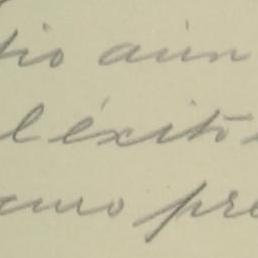 tio aún
l éxito
amo pre